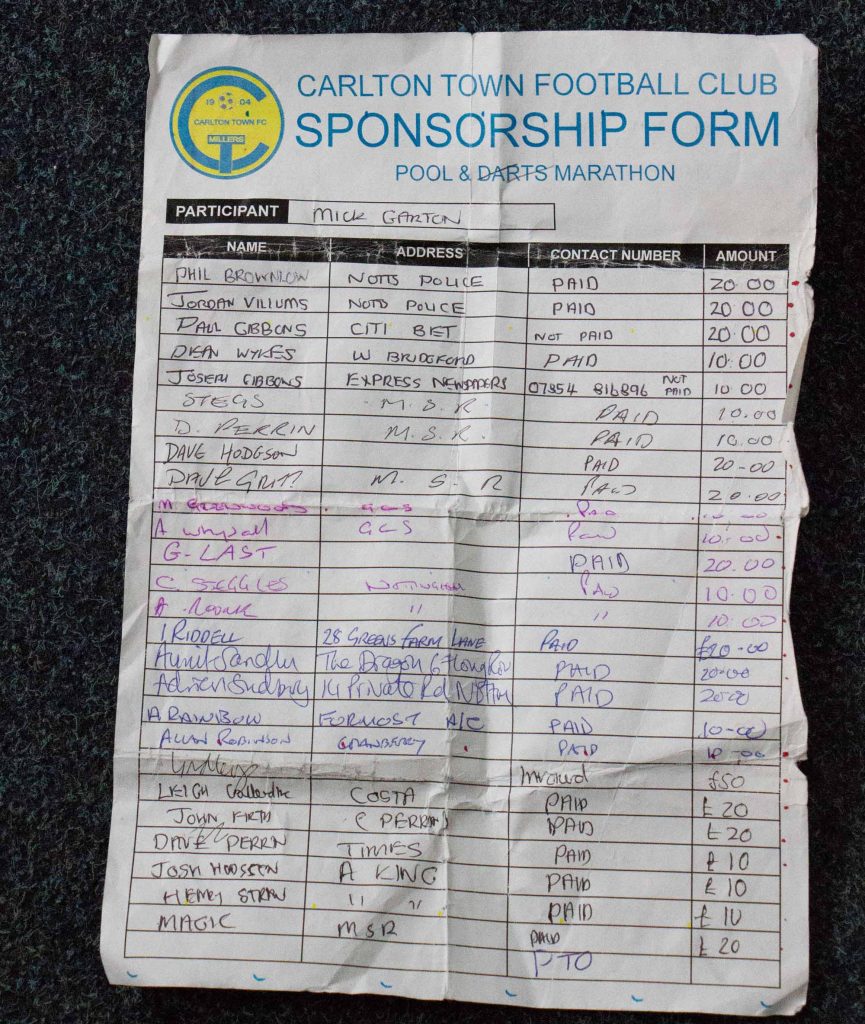 19 04
CARLTON TOWN FC
MILLERS
CARLTON TOWN FOOTBALL CLUB
SPONSORSHIP FORM
POOL & DARTS MARATHON
PARTICIPANT MICK GARTON
NAME ADDRESS CONTACT NUMBER AMOUNT
PHIL BROWNLOW NOTTS POLICE PAID 20 00
JORDAN VILIUMS NOTTS POLICE PAID 20.00
PAUL GIBBONS CITI BET NOT PAID 20.00
DEAN WYKES W BRIDGFORD PAID 10.00
JOSEPH GIBBONS EXPRESS NEWSPAPERS 07854 816896 NOT PAID 10.00
STEGS M.S.R. PAID 10.00
D. PERRIN M.S.R. PAID 10.00
DAVE HODGSON PAID 20-00
DAVE M.S.R PAID 20.00
M GCS PAID 10.00
A GCS PAID 10.00
G-LAST PAID 20.00
C. PAID 10.00
A. " " 10.00
I RIDDELL 28 GREENS FARM LANE PAID £20-00
Sandhu The Dragon 67 Long Row PAID 20-00
Adrien Sudbury 14 Private Rd PAID 20-00
A RAINBOW FORMOST A/C PAID 10-00
ALLAN ROBINSON CRANBERRY PAID 10-00
Invoiced £50
LEIGH COSTA PAID £20
JOHN FIRTH (PERRIN) PAID £20
DAVE PERRIN TIMES PAID £10
JOSH A KING PAID £10
HENRY STRAW " " PAID £10
MAGIC MSR PAID £20
PTO